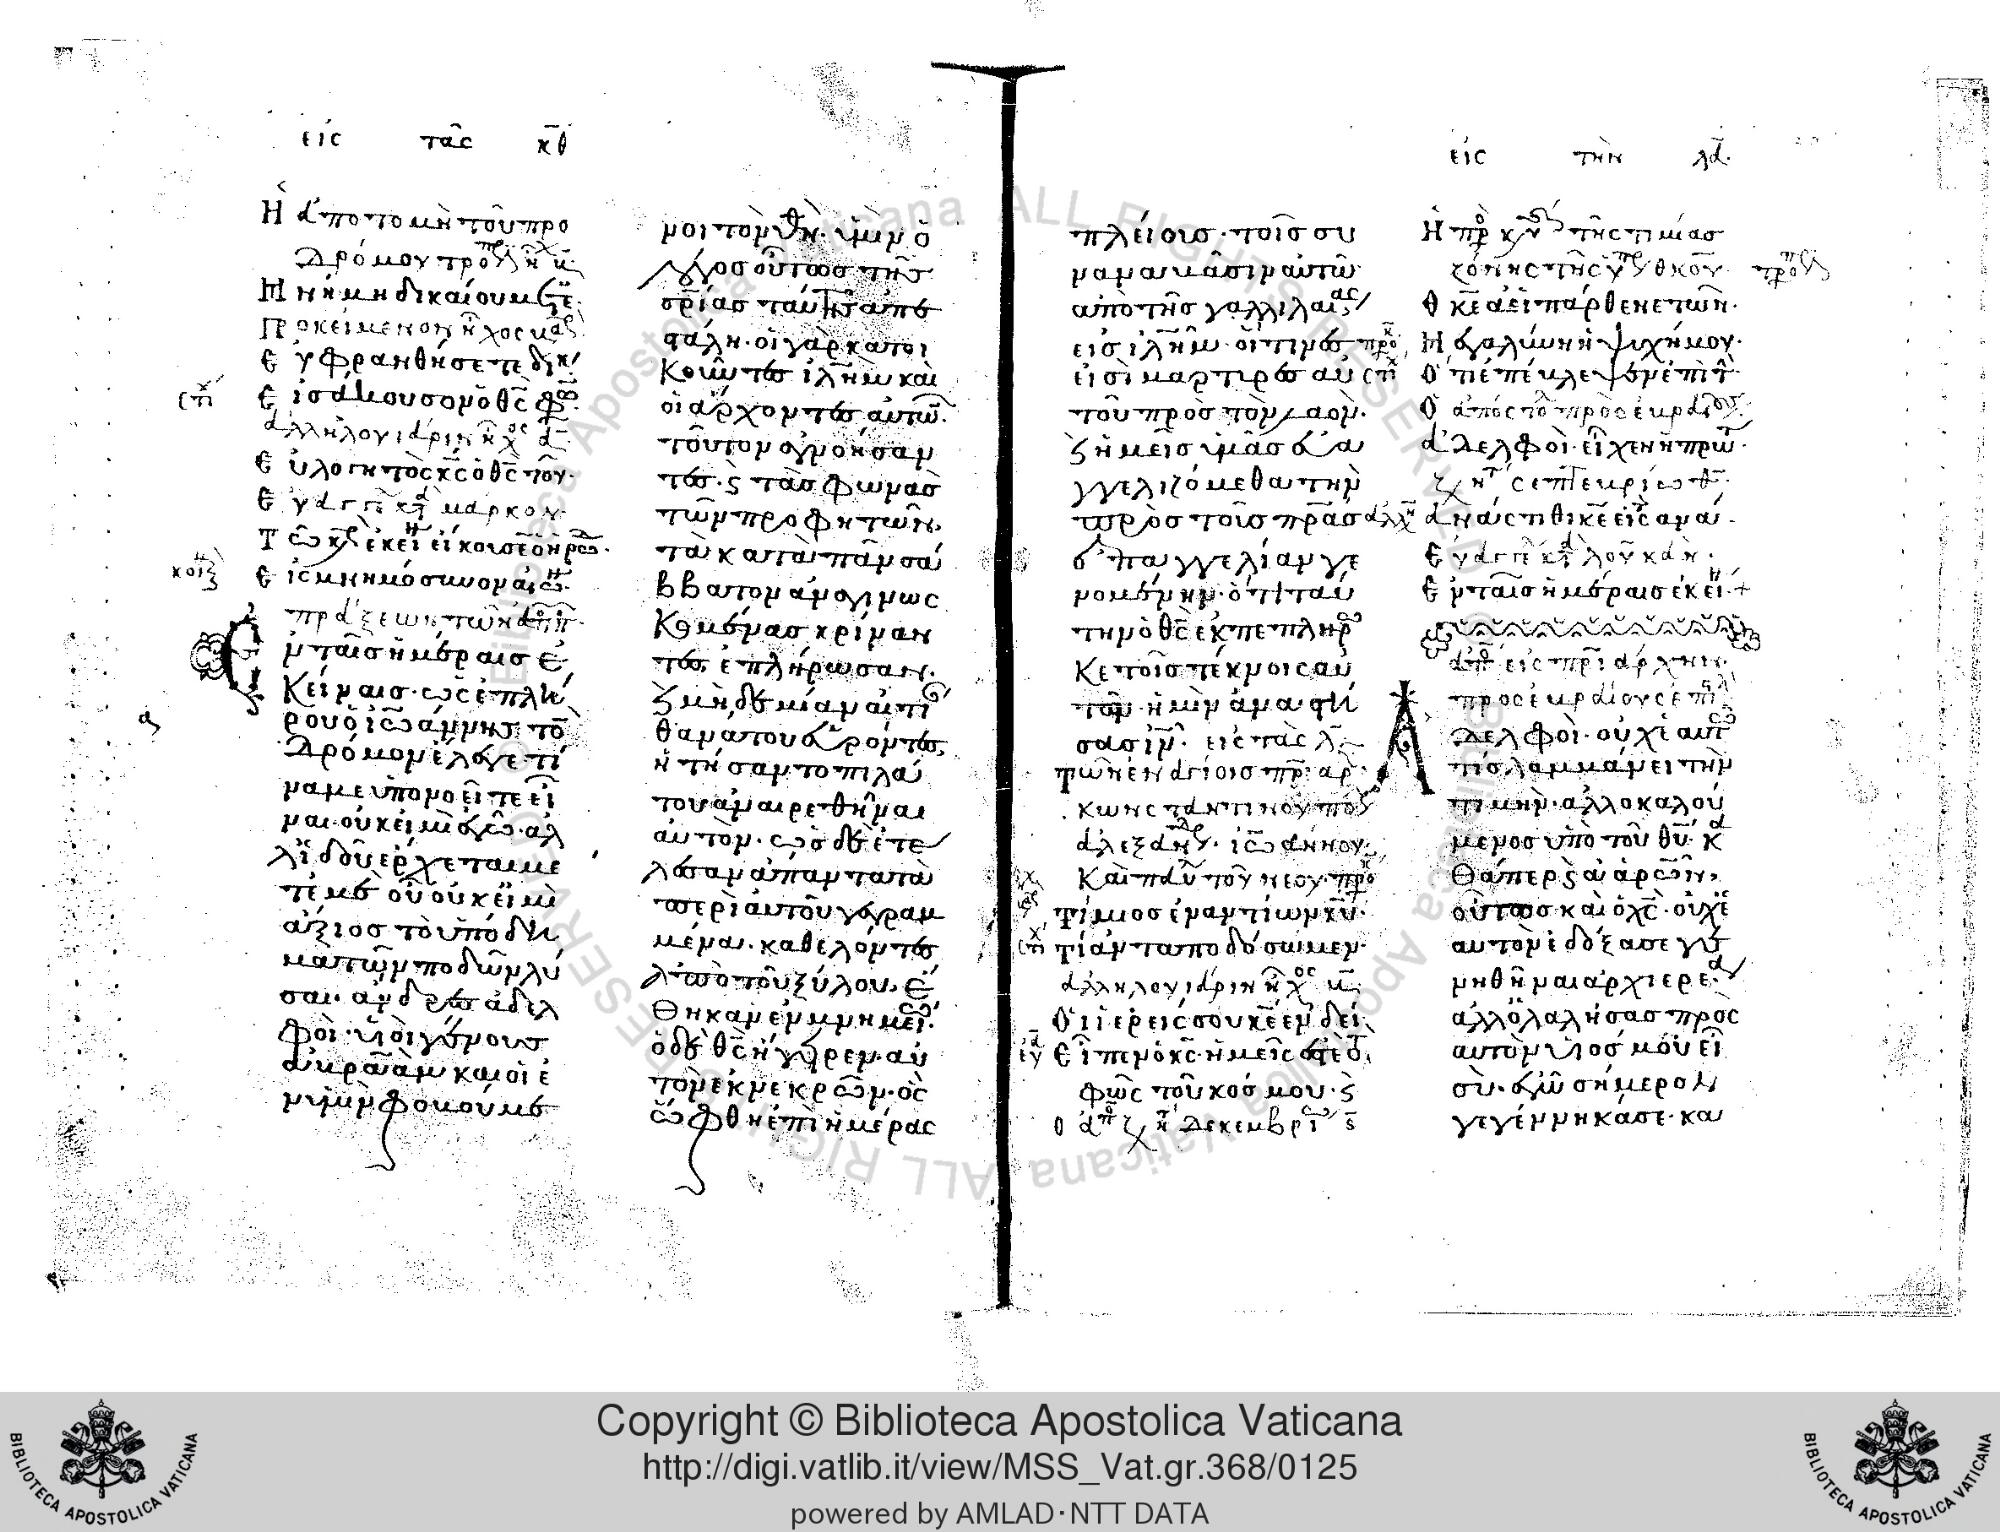 εἰς τὰς κθ
Ἡ ἀποτομὴ τοῦ προ
Δρόμου
Μνήμη δικαίου μετ
Προκείμενον ἦχος
Εὐφρανθήσεται δικ
Εἰσάκουσον ὁ θς φω
ἀλληλουιάριον ἦχος δ
Εὐλογητὸς κς ὁ θς τοῦ
Εὐαγγ κατ μάρκον
Εἰς μνημόσυνον αἰων
πράξεων τῶν ἀπο
Ἐν ταῖς ἡμέραις ἐ
κείναις· ὡς ἐπλή
ρου ὁ ἰωάννης τὸ
Δρόμον ἔλεγε τί
να με ὑπονοεῖτε εἶ
ναι· οὐκ εἰμὶ ἐγὼ· ἀλ
λ ἰδοῦ ἔρχεται με
τ ἐμὲ οὗ οὐκ εἰμὶ
ἄξιος τὸ ὑπόδη
μα τῶν ποδῶν λύ
σαι· ἄνδρες ἀδελ
φοὶ· υἱοὶ γένους
ἀβραὰμ καὶ οἱ ἐ
ν ὑμῖν φοβούμε
νοι τὸν θν· ὑμῖν ὁ
λόγος οὗτος τῆς
σρίας ταύτης ἀπε
στάλη· οἱ γὰρ κατοι
κοῦντες ἰλημ καὶ
οἱ ἄρχοντες αὐτῶν·
τοῦτον ἀγνοήσαν
τες· ς τὰς φωνὰς
τῶν προφητῶν,
τὰς κατὰ πᾶν σά
ββατον ἀναγινως
κομένας κρίναν
τες, ἐπλήρωσαν·
ς μηδεμίαν αἰτί
θανάτου εὑρόντες,
ἠτήσαντο πιλά
του ἀναιρεθῆναι
αὐτόν· ὡς δὲ ἐτέ
λεσαν ἅπαντα τὰ
περὶ αὐτοῦ γεγραμ
μένα· καθελόντες
ἀπὸ τοῦ ξύλου, ἔ
θηκαν ἐν μνημεί·
ὁ δὲ θς ἤγειρεν αὐ
τὸν ἐκ νεκρῶν· ὃς
ὤφθη ἐπὶ ἡμέρας
πλείους· τοῖς συ
ναναβᾶσιν αὐτῶ
ἀπὸ τῆς γαλλιλαίας
εἰς ἰλημ· οἵτινες
εἰσὶ μάρτυρες αὐ
τοῦ πρὸς τὸν λαόν·
ς ἡμεῖς ὑμᾶς εὐα
γγελιζόμεθα τὴν
πρὸς τοὺς πρας
ἐπαγγελίαν γε
νομένην· ὅτι ταύ
την ὁ θς ἐκπεπλήρ
κε τοῖς τέκνοις αὐ
τῶν· ἡμῖν ἀναστή
σας ιν· εἰς τὰς λ
Τῶν ἐν ἁγίοις
κωνσταντινουπόλ
ἀλεξάν· ἰωάννου,
Καὶ παύ τοῦ νέου· προ
Τίμιος ἐναντίων κυ·
Τί ἀνταποδόσωμεν·
ἀλληλουιάριον ἦχος
Οἱ ἱερεῖς σου κε ἐνδ
Εἶπεν ὁ κς· ἡμεῖς ἐστὲ τὸ
φῶς τοῦ κόσμου· ς
Ὁ ἀπ ζη Δεκεμβρί ς
εἰς τὴν λα·
Ἡ τῆς τιμίας
ζώνης τῆς θκου
Θκε ἀειπάρθενε τὴν·
Μεγαλύνει ἡ ψυχή μου·
Ὅτι ἐπέβλεψεν ἐπὶ τ
Ὁ ἀπόστο πρὸς ἑβραίους
ἀδελφοὶ· εἶχεν ἡ πρώ·
ζη σεπτεμρίω θ·
ἀνάστηθι κε εἰς ανα·
Εὐαγγ κατ λουκᾶν·
Ἐν ταῖς ἡμέραις ἐκεί·
ἀπ εἰς
πρὸς ἑβραίους ἐπι
Ἀδελφοὶ· οὐχ ἑαυτ
τίς λαμμάνει τὴν
τιμὴν· ἀλλ ὁ καλού
μενος ὑπὸ τοῦ θυ· κα
θάπερ ς ἀαρὼν,
οὕτως καὶ ὁ χς· οὐχ ἑ
αυτὸν ἐδόξασε γε
νηθῆναι ἀρχιερέα
ἀλλ ὁ λαλήσας πρὸς
αὐτὸν υἱός μου εἶ
σὺ· ἐγὼ σήμερον
γεγέννηκά σε· κα
Copyright © Biblioteca Apostolica Vaticana
http://digi.vatlib.it/view/MSS_Vat.gr.368/0125
powered by AMLAD·NTT DATA
BIBLIOTECA APOSTOLICA VATICANA
BIBLIOTECA APOSTOLICA VATICANA